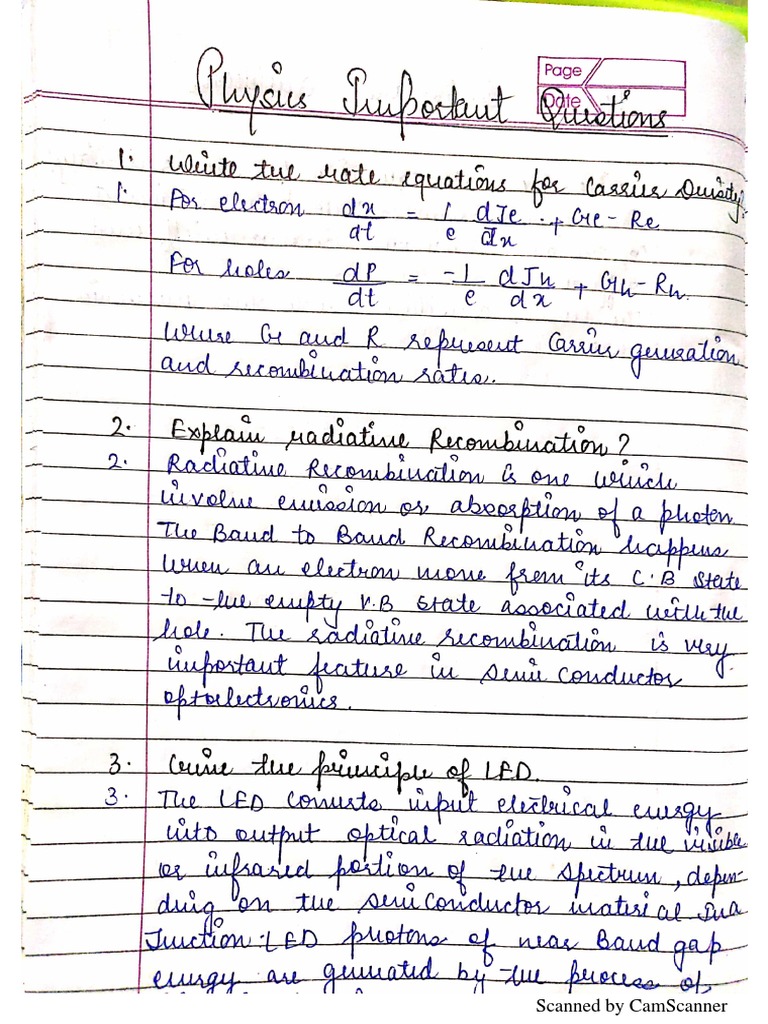 Page
Date
Physics Important Questions
1. Write the rate equations for Carrier Density.
1. For electron dx/dt = 1/e dJe/dx + Ge - Re
For holes dP/dt = -1/e dJh/dx + Gh - Rh.
Where G and R represent Carrier generation
and recombination rates.
2. Explain radiative Recombination?
2. Radiative Recombination is one which
involve emission or absorption of a photon.
The Band to Band Recombination happens
when an electron move from its C.B state
to the empty V.B state associated with the
hole. The radiative recombination is very
important feature in semi conductor
optoelectronics.
3. Give the principle of LED.
3. The LED converts input electrical energy
into output optical radiation in the visible
or infrared portion of the spectrum, depen-
ding on the semiconductor material
Junction. LED photons of near Band gap
energy are generated by the process of
Scanned by CamScanner